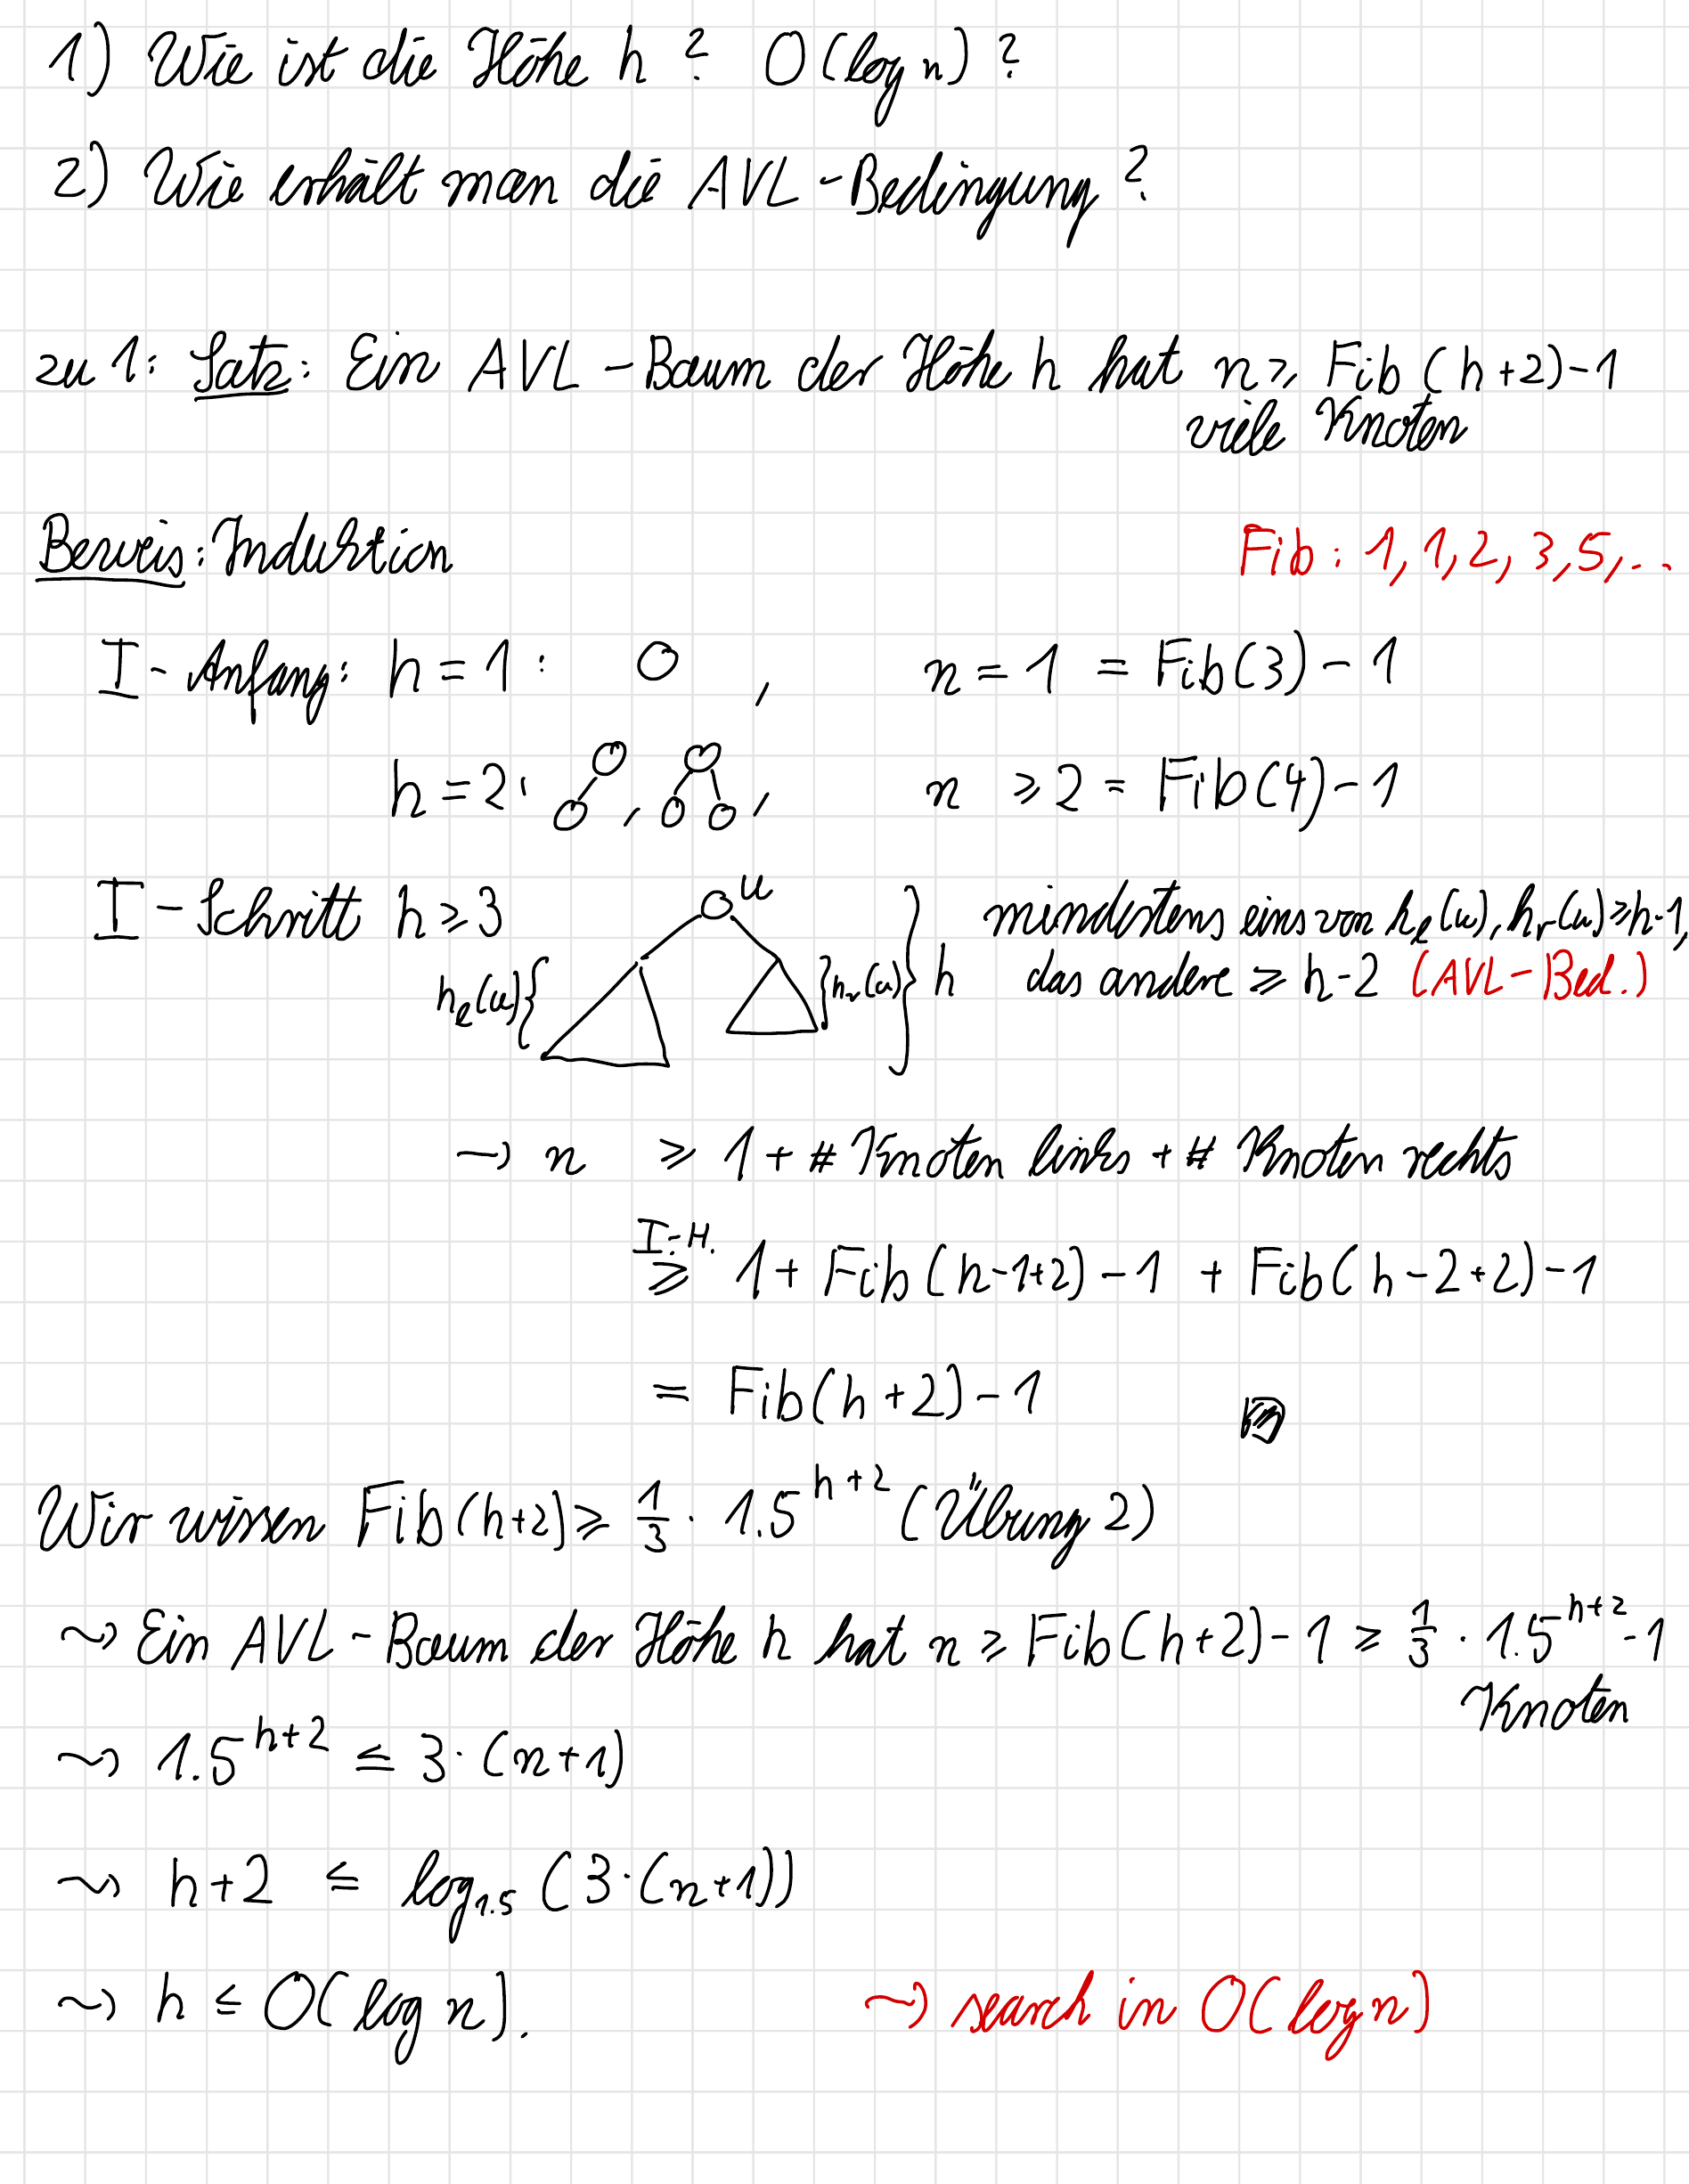 1) Wie ist die Höhe h? O(log n)?
2) Wie erhält man die AVL-Bedingung?
zu 1: Satz: Ein AVL-Baum der Höhe h hat n ≥ Fib(h+2)-1
viele Knoten
Beweis: Induktion
Fib: 1, 1, 2, 3, 5, ..
I-Anfang: h = 1: , n = 1 = Fib(3) - 1
h = 2: , , n ≥ 2 = Fib(4) - 1
I-Schritt h ≥ 3
u
mindestens eins von hₗ(u), hᵣ(u) ≥ h-1,
hₗ(u){ }hᵣ(u) } h das andere ≥ h-2 (AVL-Bed.)
→ n ≥ 1 + # Knoten links + # Knoten rechts
I.-H.
≥ 1 + Fib(h-1+2) - 1 + Fib(h-2+2) - 1
= Fib(h+2) - 1
Wir wissen Fib(h+2) ≥ 1/3 · 1.5^(h+2) (Übung 2)
⇝ Ein AVL-Baum der Höhe h hat n ≥ Fib(h+2) - 1 ≥ 1/3 · 1.5^(h+2) - 1
Knoten
⇝ 1.5^(h+2) ≤ 3·(n+1)
⇝ h+2 ≤ log₁.₅(3·(n+1))
⇝ h ≤ O(log n).
⇝ search in O(log n)